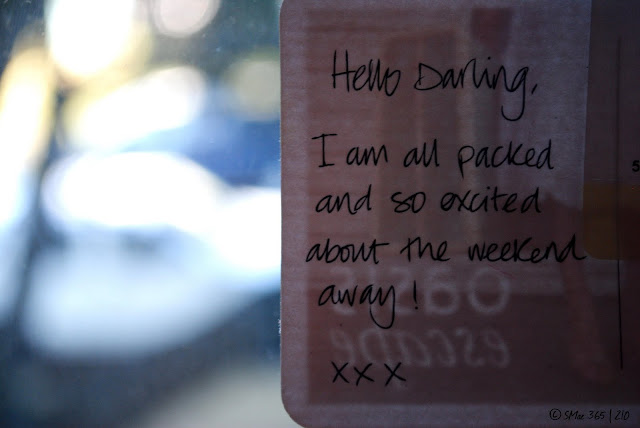 Hello Darling,
I am all packed
and so excited
about the weekend
away!
xxx
oasis
escape
5
© SMac 365 | 210